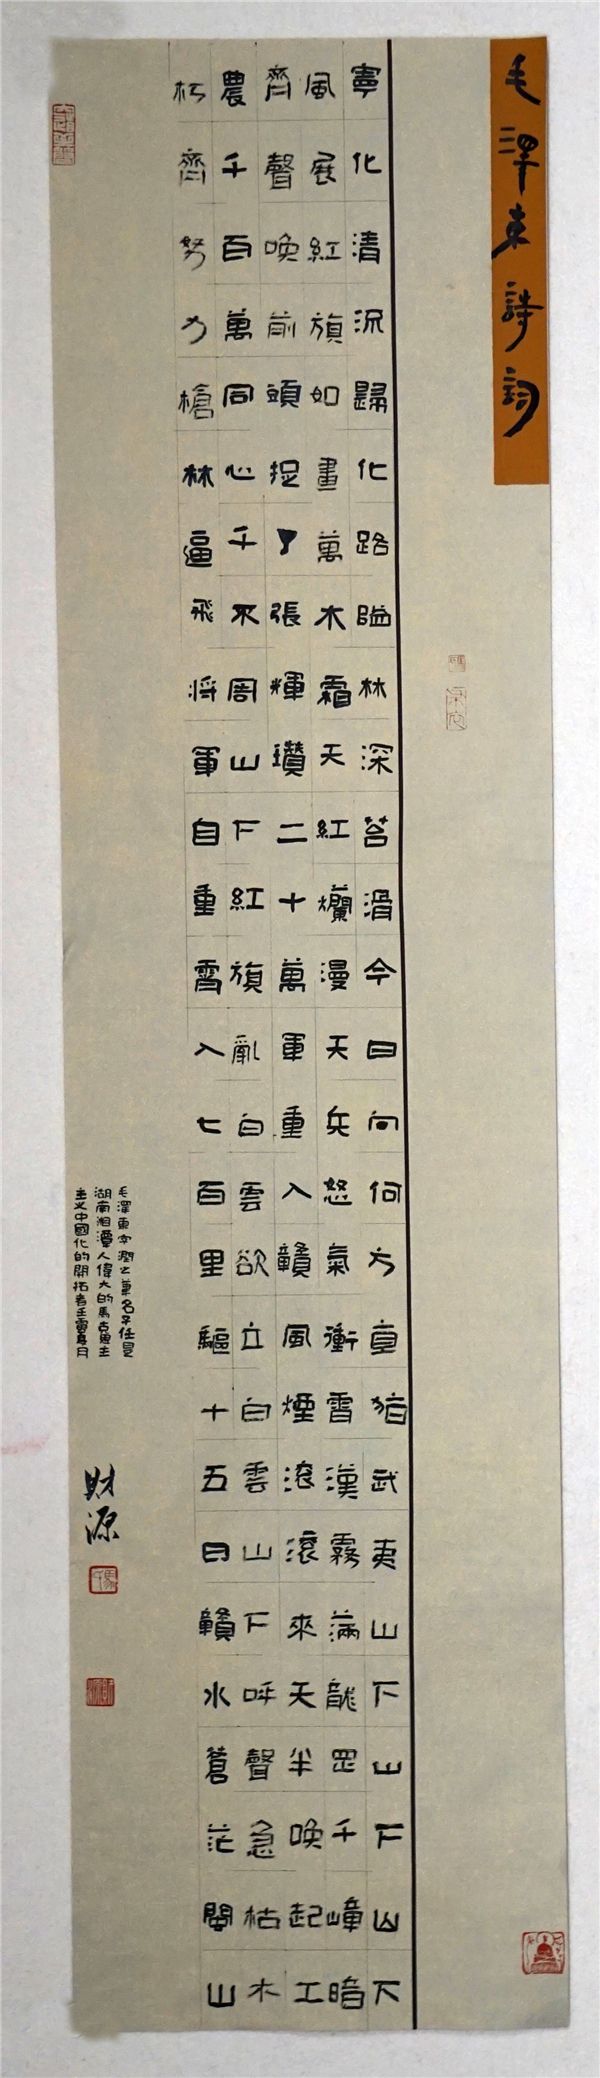 毛澤東詩詞
寧化清流歸化路隘林深苔滑今日向何方直指武夷山下山下山下
風展紅旗如畫萬木霜天紅爛漫天兵怒氣衝霄漢霧滿龍罡千嶂暗
齊聲喚前頭捉了張輝瓚二十萬軍重入贛風煙滾滾來天半喚起工
農千百萬同心千不周山下紅旗亂白雲欲立白雲山下呼聲急枯木
朽齊努力槍林逼飛將軍自重霄入七百里驅十五日贛水蒼茫閩山
毛澤東字潤之筆名子任是
湖南湘潭人偉大的馬克思主
主义中國化的開拓者壬寅月
財源